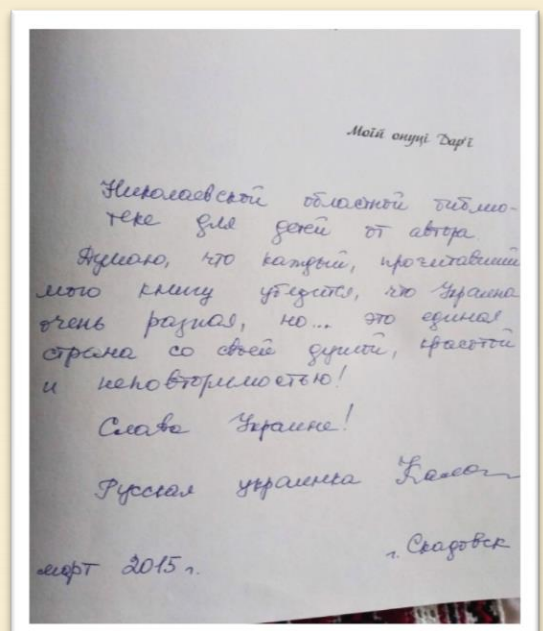 Моїй онуці Дар'ї
Николаевской областной библио-
теке для детей от автора.
Думаю, что каждый, прочитавший
мою книгу убедится, что Украина
очень разная, но... это единая
страна со своей душой, красотой
и неповторимостью!
Слава Украине!
Русская украинка
г. Скадовск
март 2015 г.